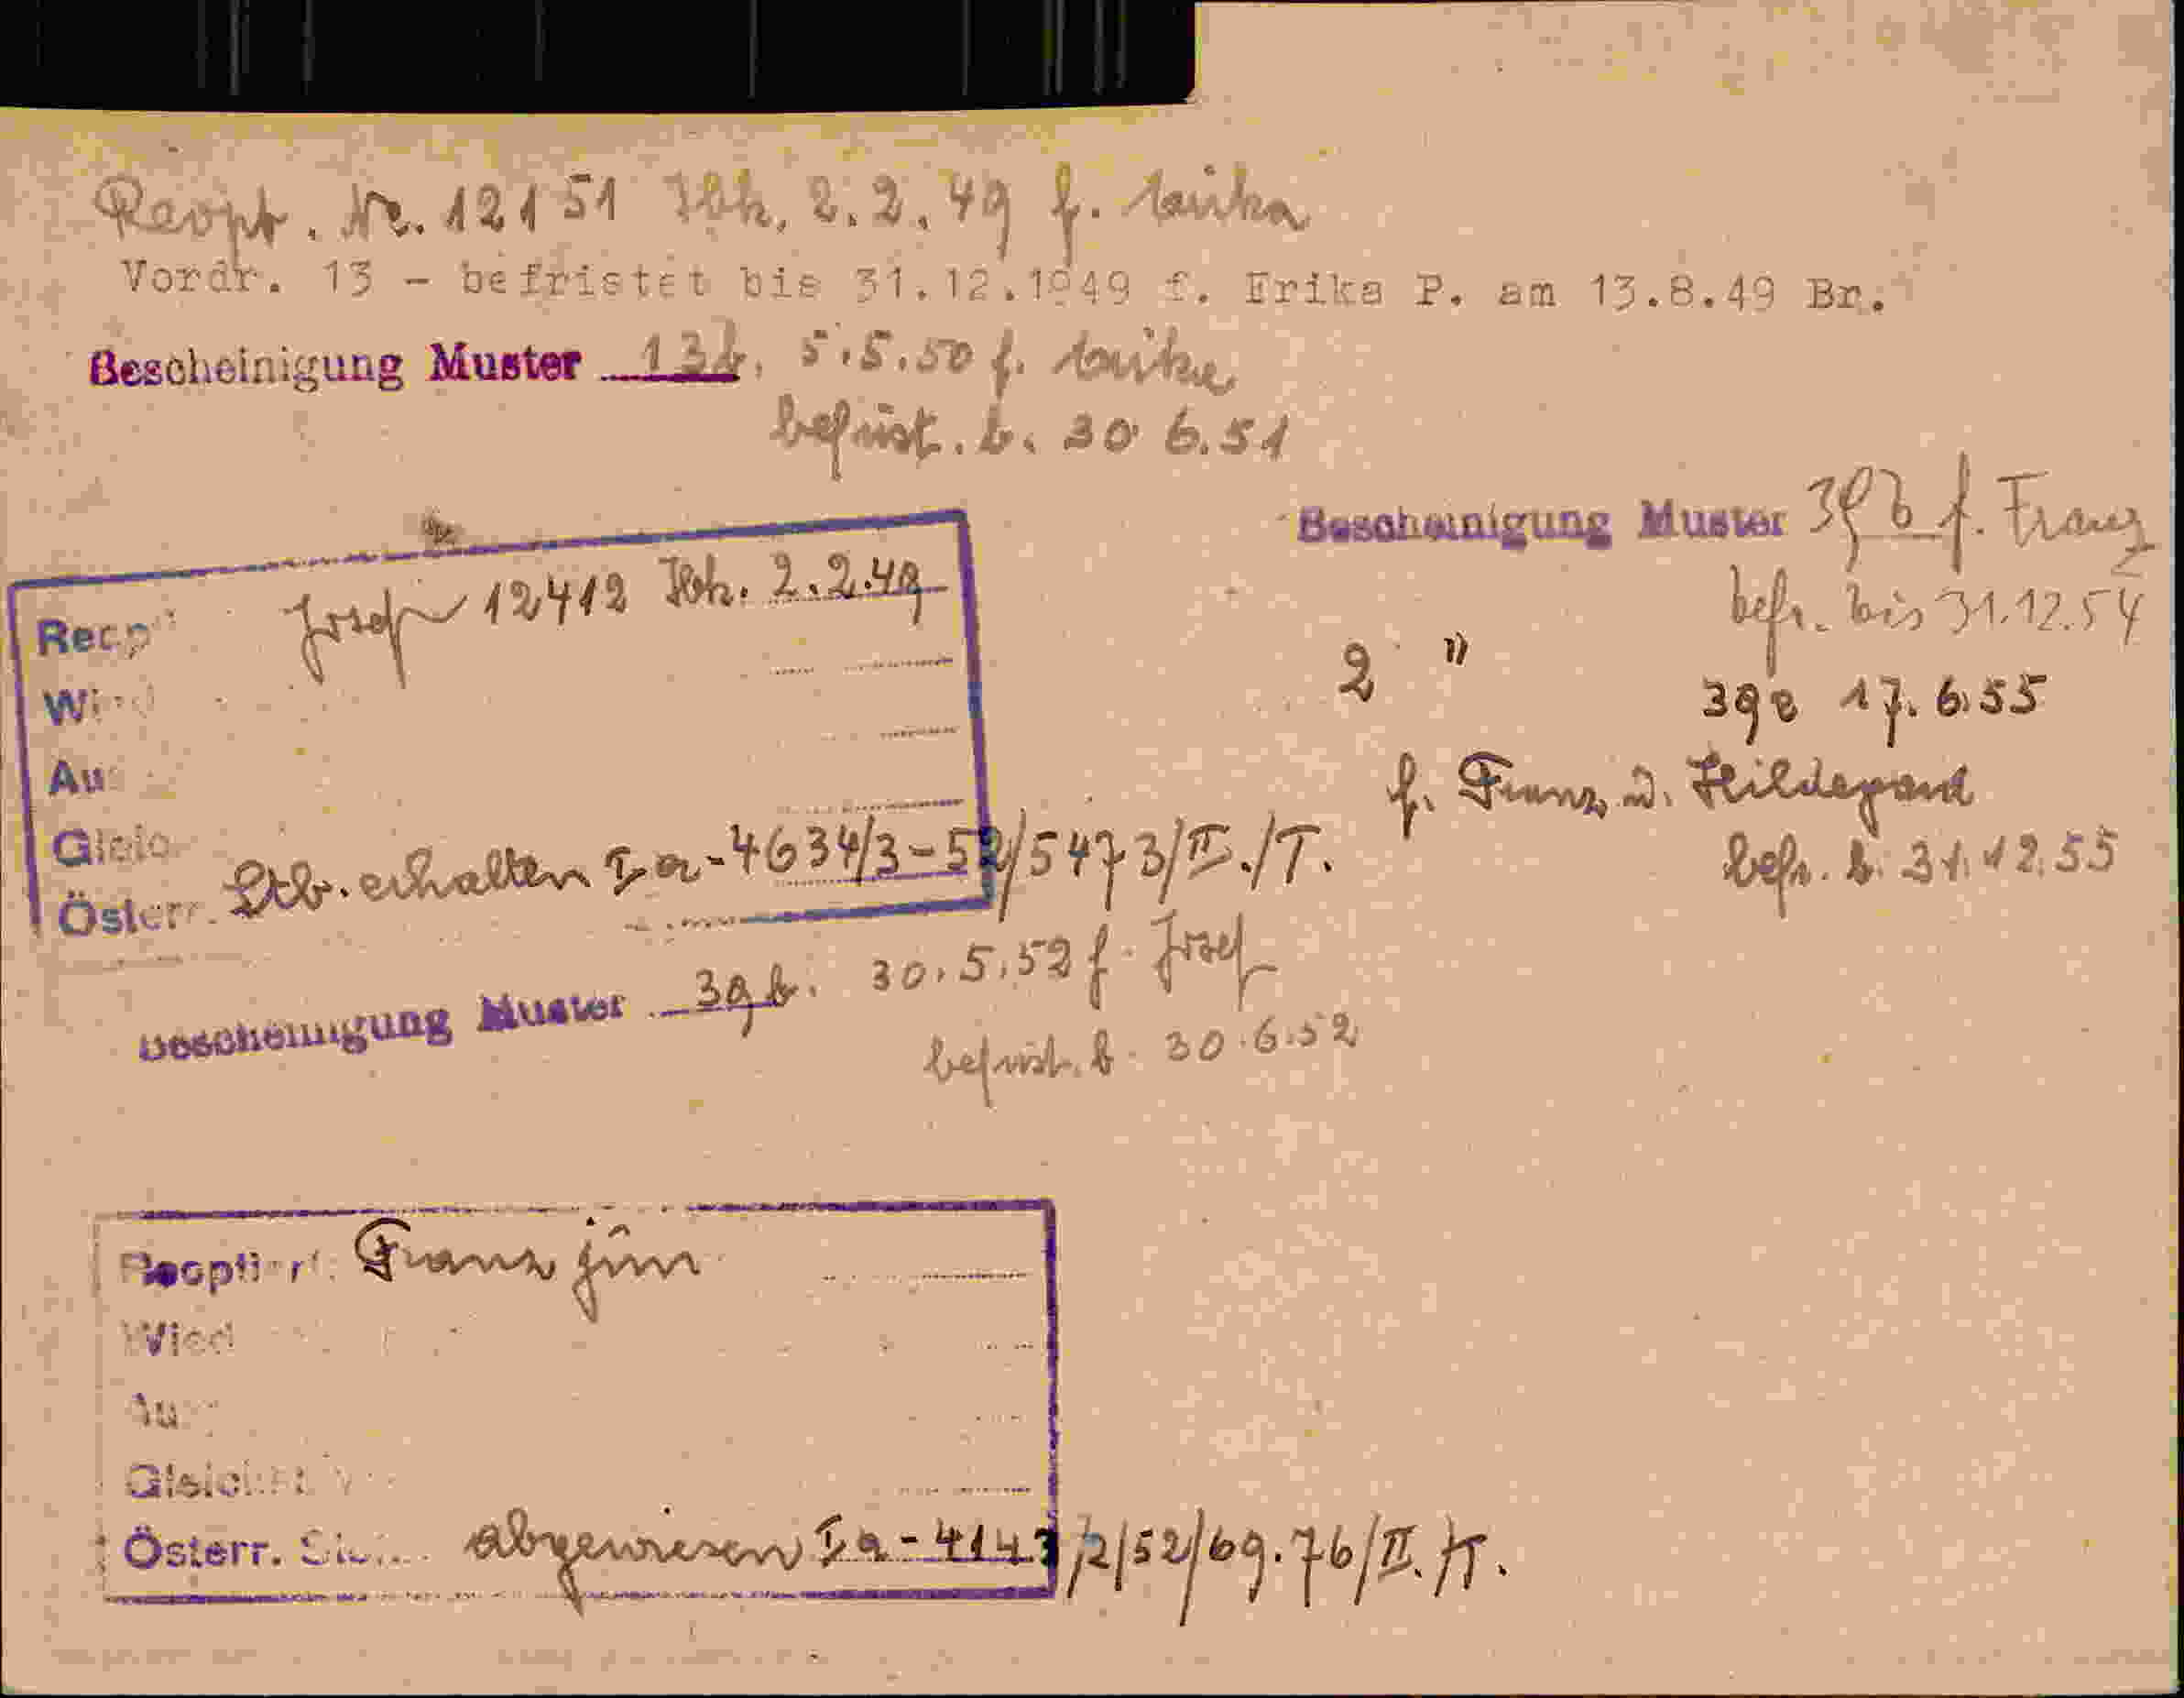 Reopt. Nr. 12151 Ibk. 2.2.49 f. Erika
Vordr. 13 - befristet bis 31.12.1949 f. Erika P. am 13.8.49 Br.
Bescheinigung Muster 13b. 5.5.50 f. Erika
befrist. b. 30 6.51
Bescheinigung Muster 39b f. Franz
befr. bis 31.12.54
Josef 12412 Ibk. 2.2.49
Reopt
Wied
Au
Gleic
Österr. Stb. erhalten Ia-4634/3-52/5473/II./T.
2 "
39e 17.6.55
f. Franz u. Hildegard
befr. b. 31.12.55
Bescheinigung Muster 39b. 30.5.52 f. Josef
befrist. b. 30.6.52
Reoptiert: Franz jun
Wied
Au
Gleich
Österr. abgewiesen Ia-4143/2/52/69.76/II./T.